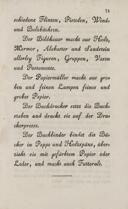 74
schiedene Flinten, Pistolen, Wind-
und Bolzbüchsen.
Der Bildhauer macht aus Holz,
Marmor, Alabaster und Sandstein
allerley Figuren, Gruppen, Vasen
und Postamente.
Der Papiermüller macht aus gro-
ben und feinen Lumpen feines und
grobes Papier.
Der Buchdrucker setzt die Buch-
staben und druckt sie auf der Druc-
kerpresse.
Der Buchbinder bindet die Bü-
cher in Pappe und Holzspäne, über-
zieht sie mit gefärbtem Papier oder
Leder, und macht auch Futterale.